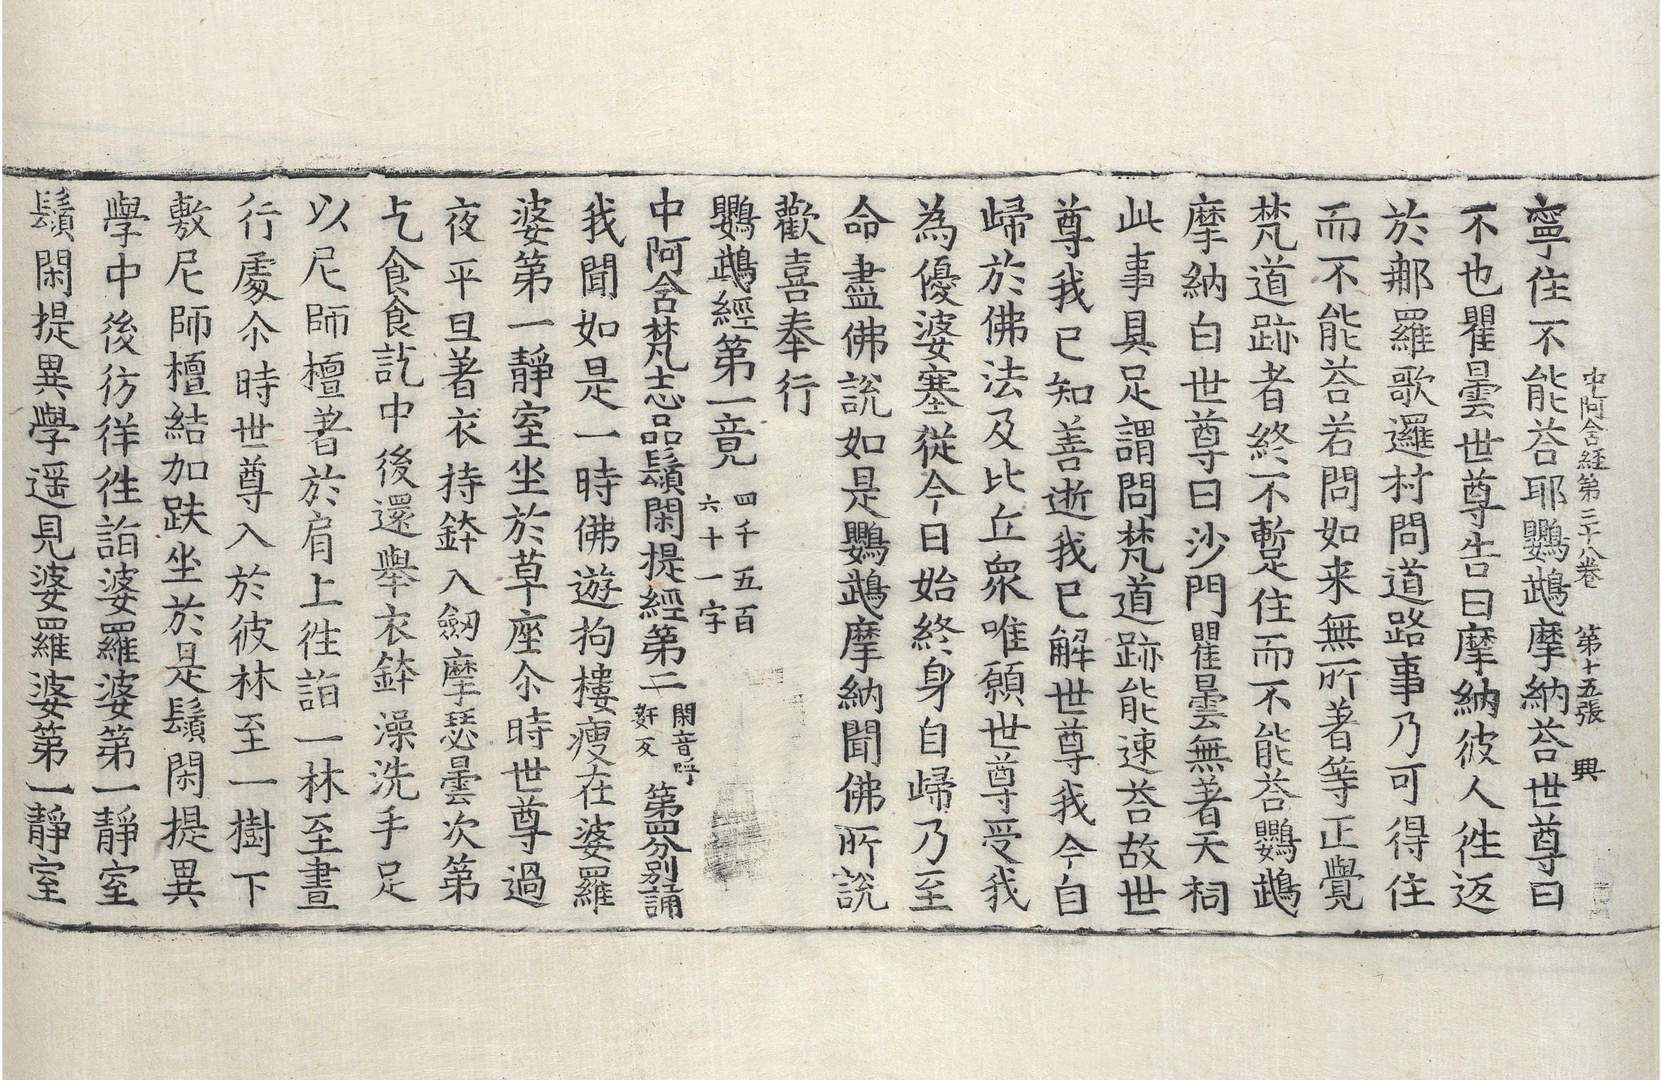 中阿含經第三十八卷 第十五張 興
寧住不能荅耶鸚鵡摩納荅世尊曰
不也瞿曇世尊告曰摩納彼人徃返
於那羅歌邏村問道路事乃可得住
而不能荅若問如来無所著等正覺
梵道跡者終不暫住而不能荅鸚鵡
摩納白世尊曰沙門瞿曇無著天祠
此事具足謂問梵道跡能速荅故世
尊我已知善逝我已解世尊我今自
歸於佛法及比丘衆唯願世尊受我
為優婆塞從今日始終身自歸乃至
命盡佛說如是鸚鵡摩納聞佛所說
歡喜奉行
鸚鵡經第一竟 四千五百六十一字
中阿含梵志品鬚閑提經第二 閑音呼姧反 第四分別誦
我聞如是一時佛遊拘樓瘦在婆羅
婆第一靜室坐於草座尒時世尊過
夜平旦著衣持鉢入劒摩瑟曇次第
乞食食訖中後還舉衣鉢澡洗手足
以尼師檀著於肩上徃詣一林至晝
行處尒時世尊入於彼林至一樹下
敷尼師檀結加趺坐於是鬚閑提異
學中後彷徉徃詣婆羅婆第一靜室
鬚閑提異學遥見婆羅婆第一靜室